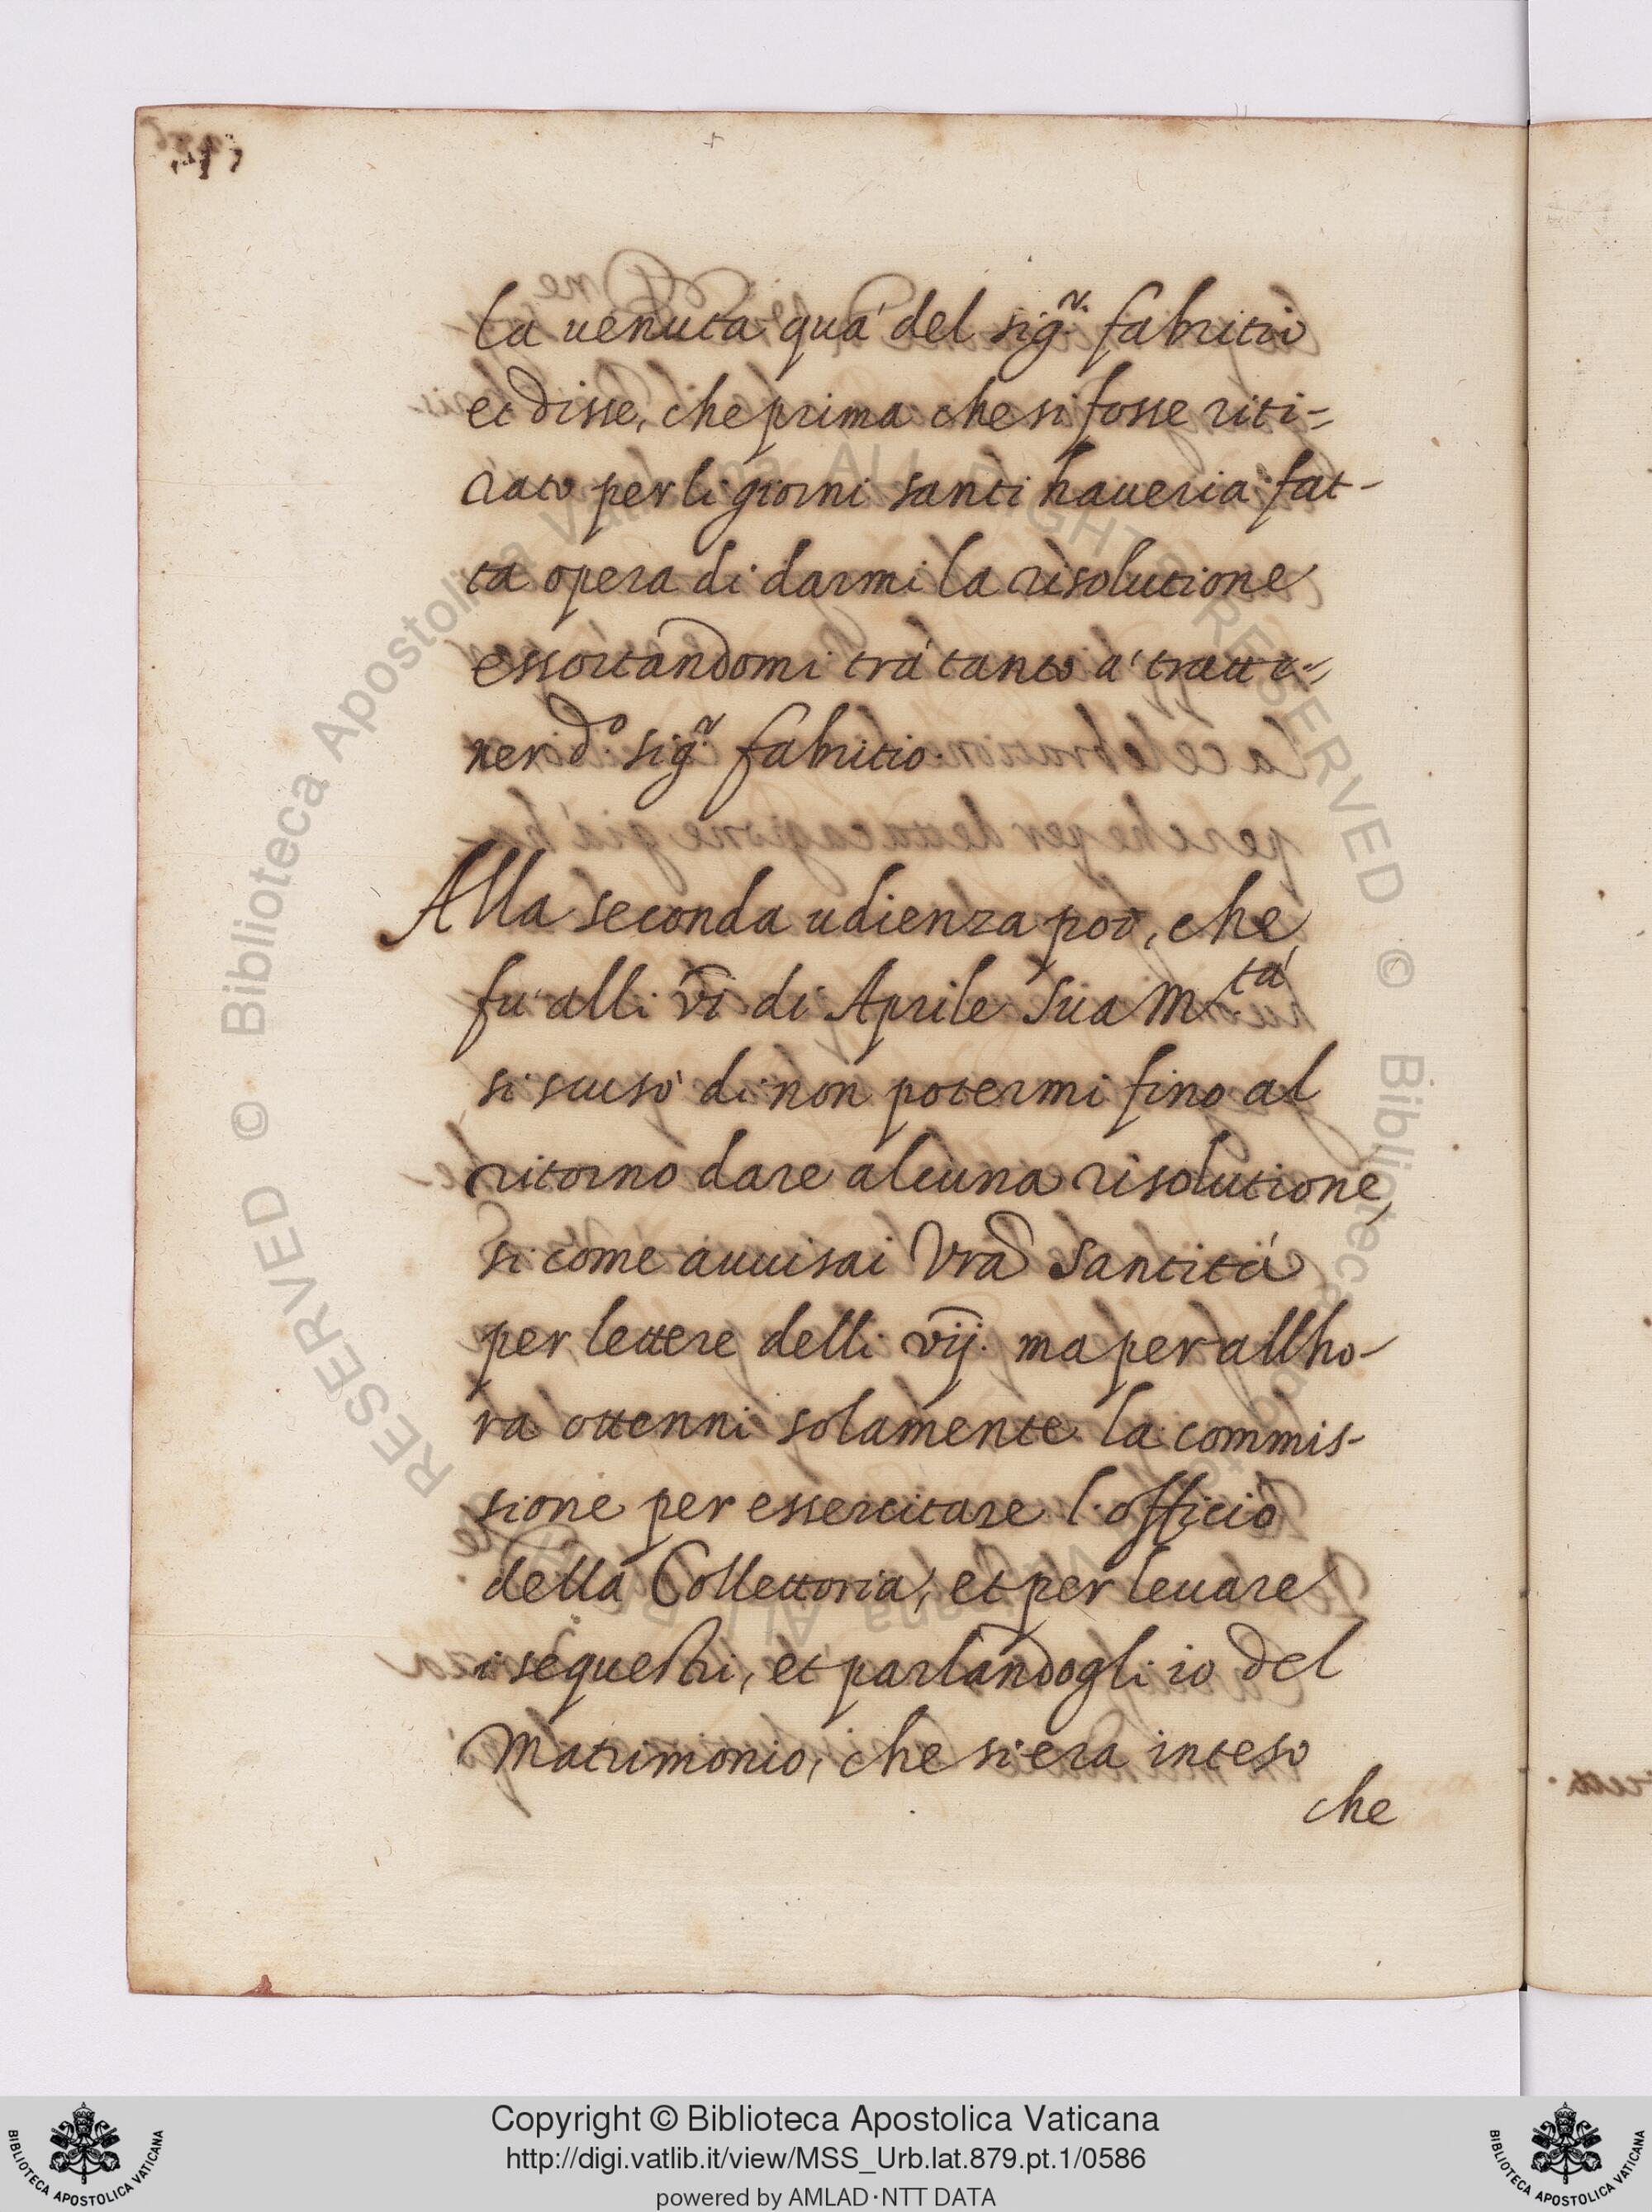 la uenuta quà del sig.r fabritio
et disse, che prima che si fosse riti=
rato per li giorni santi haueria fat-
ta opera di darmi la risolutione
essortandomi trà tanto à tratte=
ner d.o sig.r fabritio.
Alla seconda udienza poi, che
fu alli vi di Aprile sua M.tà
si scusò di non potermi fino al
ritorno dare alcuna risolutione,
si come auuisai Vra Santità
per lettere delli vij. ma per allho-
ra ottenni solamente la commis-
sione per essercitare l officio
della Collettoria, et per leuare
i sequestri, et parlandogli io del
Matrimonio, che si era inteso
che
RESERVED © Biblioteca Apostolica Vaticana ALL RIGHTS RESERVED © Biblioteca Apostolica Vaticana ALL
Copyright © Biblioteca Apostolica Vaticana
http://digi.vatlib.it/view/MSS_Urb.lat.879.pt.1/0586
powered by AMLAD·NTT DATA
BIBLIOTECA APOSTOLICA VATICANA
BIBLIOTECA APOSTOLICA VATICANA